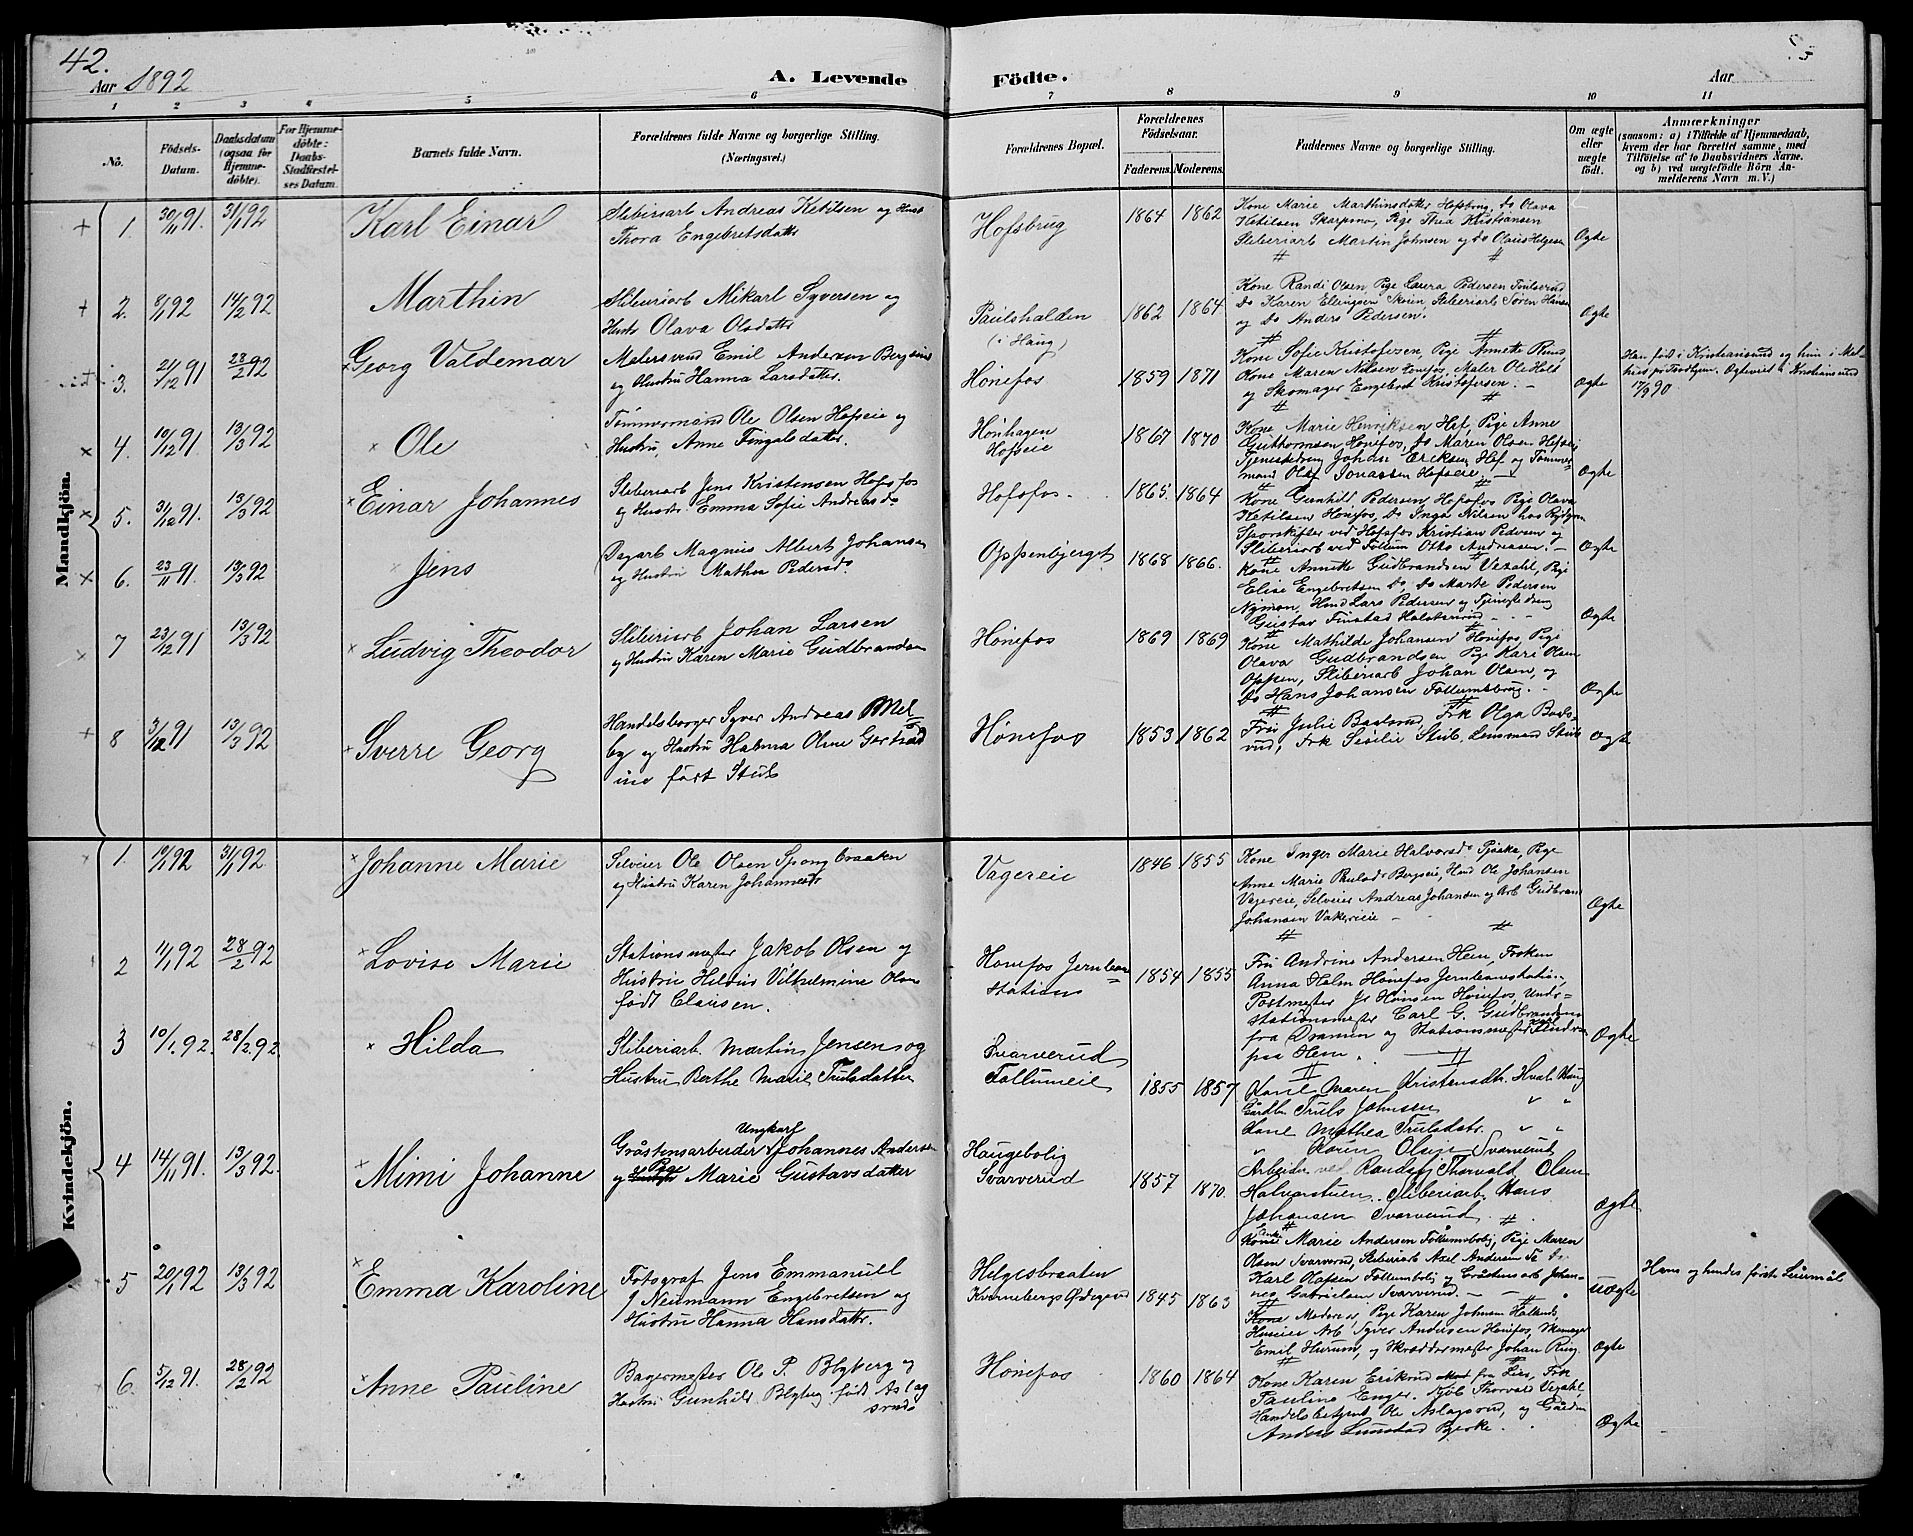 42.
Aar 1892
A. Levende Födte.
Aar
1 2 3 4 5 6 7 8 9 10 11
No.
Födsels-Datum.
Daabsdatum (ogsaa for Hjemme-döbte).
For Hjemme-döbte: Daabs-Stadfæstel-ses Datum.
Barnets fulde Navn.
Forældrenes fulde Navne og borgerlige Stilling. (Næringsvei.)
Forældrenes Bopæl.
Forældrenes Födselsaar.
Faderens. Moderens.
Faddernes Navne og borgerlige Stilling.
Om ægte eller uægte födt.
Anmærkninger
(saasom: a) i Tilfælde af Hjemmedaab, hvem der har forrettet samme, med Tilföielse af to Daabsvidners Navne. og b) ved uægtefödte Börn An-melderens Navn m. V.)
Mandkjön.
1 30/11 91. 31/1 92 Karl Einar
Sliberiarb Andreas Ketilsen og Hust
Thora Engebretsdatter
Hofsbrug 1864 1862
Kone Marie Marthinsdatter Hofsbrug, Do Olava
Ketilsen Skarpsno, Pige Thea Kristiansen
Sliberiarb Martin Johnsen og Do Olaus Helgesen
Ægte
2. 8/1 92 14/2 92 Marthin
Sliberiarb Mikael Syversen og
Hustr Olava Olsdatter
Paulshalden
(i Haug)
1862 1864
Kone Randi Olsen, Pige Laura Pedersen
Do Karen Ellingsen Skoien, Sliberiarb Søren Hansen
og Do Anders Pedersen.
Ægte
3. 21/12 91 28/2 92 Georg Valdemar
Malersvend Emil Andersen Bergsund
og Hustru Hanna Larsdatter.
Hönefos 1859 1871
Kone Sofie Kristofersen, Pige Annette Rund,
Kone Maren Nilsen Hönefos, Maler Ole Hols
og Skomager Engebret Kristofersen.
Ægte
Han født i Kristiansund og hun i Mel-
hus på Trondhjem. Ægteviet i Kristiansund
17/9 90
4. 10/12 91 13/3 92 Ole
Tömmermand Ole Olsen Hofseie og
Hustru, Anne Fingalsdatter.
Hönhagen
Hofseie
1867 1870
Kone Marie Henriksen Hof, Pige Anne
Guthormsen Hönefos, Do Maren Olsen Hofseie
Tjenestedreng Johan Eriksen Hof og Tömmer
mand Olaf Jonassen Hofseie.
Ægte
5. 31/12 91. 13/3 92 Einar Johannes
Sliberiarb Jens Kristensen Hofsfos
og Hustr. Emma Sofie Andreasd.
Hofsfos. 1865. 1864
Kone Gunhild Pedersen Hofsfos Pige Olava
Ketilsen Hönefos, Do Inga Nilsen hos
Sporskifter ved Hofsfos Kristian Pedersen og
Sliberiarb ved Follum Otto Andreassen.
Ægte
6. 23/11 91. 13/3 92 Jens
Dagarb Magnus Albert Johansen
og Hustru Mathea Pedersd.
Oppenbjerget 1868 1866.
Kone Annette Gudbrandsen Vezahl, Pige
Elise Engebretsen Do Do Marte Pedersen
Nymon, Hmd Lars Pedersen og Tjenestedreng
Gustav Finstad Halstenrud
Ægte
7 23/12 91 13/3 92 Ludvig Theodor
Sliberiarb Johan Larsen
og Hustru Karen Marie Gudbrandsen
Hönefos 1869 1869
Kone Mathilde Johansen Hönefos, Pige
Olava Gudbrandsen Pige Kari Olsen
Oppen, Sliberiarb Johan Olsen, og
Do Hans Johansen Follumsbrug.
Ægte
8 3/12 91 13/3 92 Sverre Georg
Handelsborger Syver Andreas Mel-
by og Hustru Halma Oline Gertrud
ine født Stub
Hönefos 1853 1862
Fru Julie Badsrud, Frk Olga Bads-
rud, Frk Sisilie Stub, Lensmand Stub
Ægte
Kvindekjön.
1. 10/1 92 31/1 92 Johanne Marie
Selveier Ole Olsen Spongbraaten
og Hustru Karen Johannesdr
Vagereie 1846 1855
Kone Inger Marie Halvorsd. Tjoska, Pige
Anne Marie Paulsd. Bergseie, Hmd Ole Johansen
Vagereie, Selveier Andreas Johansen og Arb Gudbran
Johansen Vakereie
Ægte
2 11/1 92 28/2 92 Lovise Marie
Stationsmester Jakob Olsen og
Hustru Hildur Vilhelmine Olsen
født Clausen.
Hönefos Jernban=
Stations
1854 1855
Fru Andrine Andersen Hem, Frøken
Anna Holm Hönefos Jernbanestation,
Postmester Js Hansen Hönefos, Under-
stationsmester Carl G. Gudbrandsen
fra Dramen og Stationsmester
paa Hem.
Ægte
3 10/1 92. 28/2 92. Hilda
Sliberiarb. Martin Jensen og
Hustru Berthe Marie Trulsdatter
Svarverud
Follumeie
1855 1857
Kone Maren Kristensdtr. Hval Haug
Gårdbr Truls Johnsen " "
Kone Mathea Trulsdatr. " "
" Karen Olsen Svarverud
Arbeider ved Randsfj Thorvald Olsen
Halvorstuen. Sliberiarb Hans
Johansen Svarverud
Ægte
4 14/11 91. 13/3 92. Mimi Johanne
Ungkarl
Gråstensarbeider Johannes Andersen
og Pige Marie Gustavsdatter
Haugebolig
Svarverud
1857 1870.
Enke Marie Andersen Follumsbolig, Pige Maren
Olsen Svarverud, Sliberiarb Axel Andersen
Karl Olafsen Follumbolig og Gråstensarb Johan-
nes Gabrielsen Svarverud.
uægte
Hans og hendes første Leiermål
5 20/1 92 13/3 92 Emma Karoline
Fotograf Jens Emmanuel
Neumann Engebretsen og
Hustru Hanna Hansdatter.
Helgesbraaten
Kvernebergs Ødegård
1845 1863
Kone Moderen, Pige Karen Johnsen
Huseier Arb Syver Andersen Hönefos, Skomager
Emil Hurum, og Skræddermester Johan Ring.
Ægte
6. 5/12 91. 28/2 92 Anne Pauline
Bagermester Ole P. Blyberg og
Hustru Gunhild Blyberg født Aslag
srud
Hönefos 1860 1864
Kone Karen Eriksrud fra Lier, Frk
Pauline Enger, Kjöb Thorvald Vezahl,
Handelsbetjent Ole Aslagsrud, og Gårdm
Anders Lunstad Bjerke.
Ægte